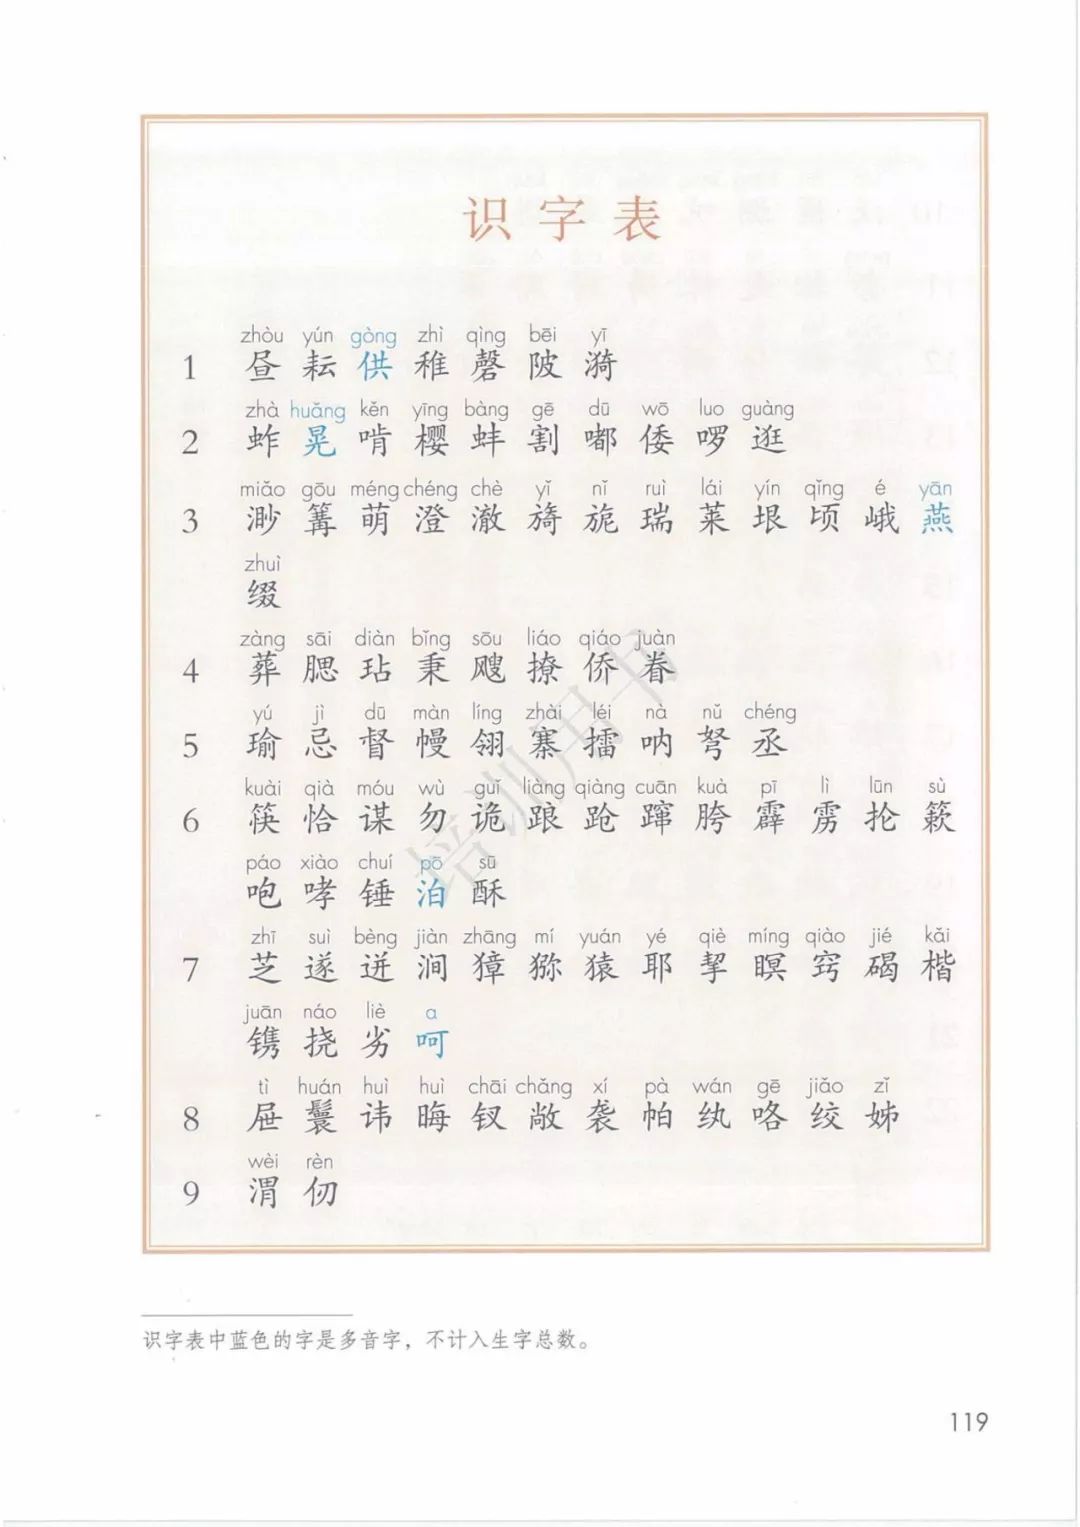 识字表
zhòu yún gòng zhì qìng bēi yī
1 昼 耘 供 稚 磬 陂 漪
zhà huǎng kěn yīng bàng gē dū wō luo guàng
2 蚱 晃 啃 樱 蚌 割 嘟 倭 啰 逛
miǎo gōu méng chéng chè yǐ nǐ ruì lái yín qǐng é yān
3 渺 篝 萌 澄 澈 旖 旎 瑞 莱 垠 顷 峨 燕
zhuì
缀
zàng sāi diàn bǐng sōu liáo qiáo juàn
4 葬 腮 玷 秉 飕 撩 侨 眷
yú jì dū màn líng zhài léi nà nǔ chéng
5 瑜 忌 督 幔 翎 寨 擂 呐 弩 丞
kuài qià móu wù guǐ liàng qiàng cuān kuà pī lì lūn sù
6 筷 恰 谋 勿 诡 踉 跄 蹿 胯 霹 雳 抡 簌
páo xiào chuí pō sū
咆 哮 锤 泊 酥
zhī suì bèng jiàn zhāng mí yuán yé qiè míng qiào jié kǎi
7 芝 遂 迸 涧 獐 猕 猿 耶 挈 瞑 窍 碣 楷
juān náo liè a
镌 挠 劣 呵
tì huán huì huì chāi chǎng xí pà wán gē jiǎo zǐ
8 屉 鬟 讳 晦 钗 敞 袭 帕 纨 咯 绞 姊
wèi rèn
9 渭 仞
识字表中蓝色的字是多音字，不计入生字总数。
119
培训用书